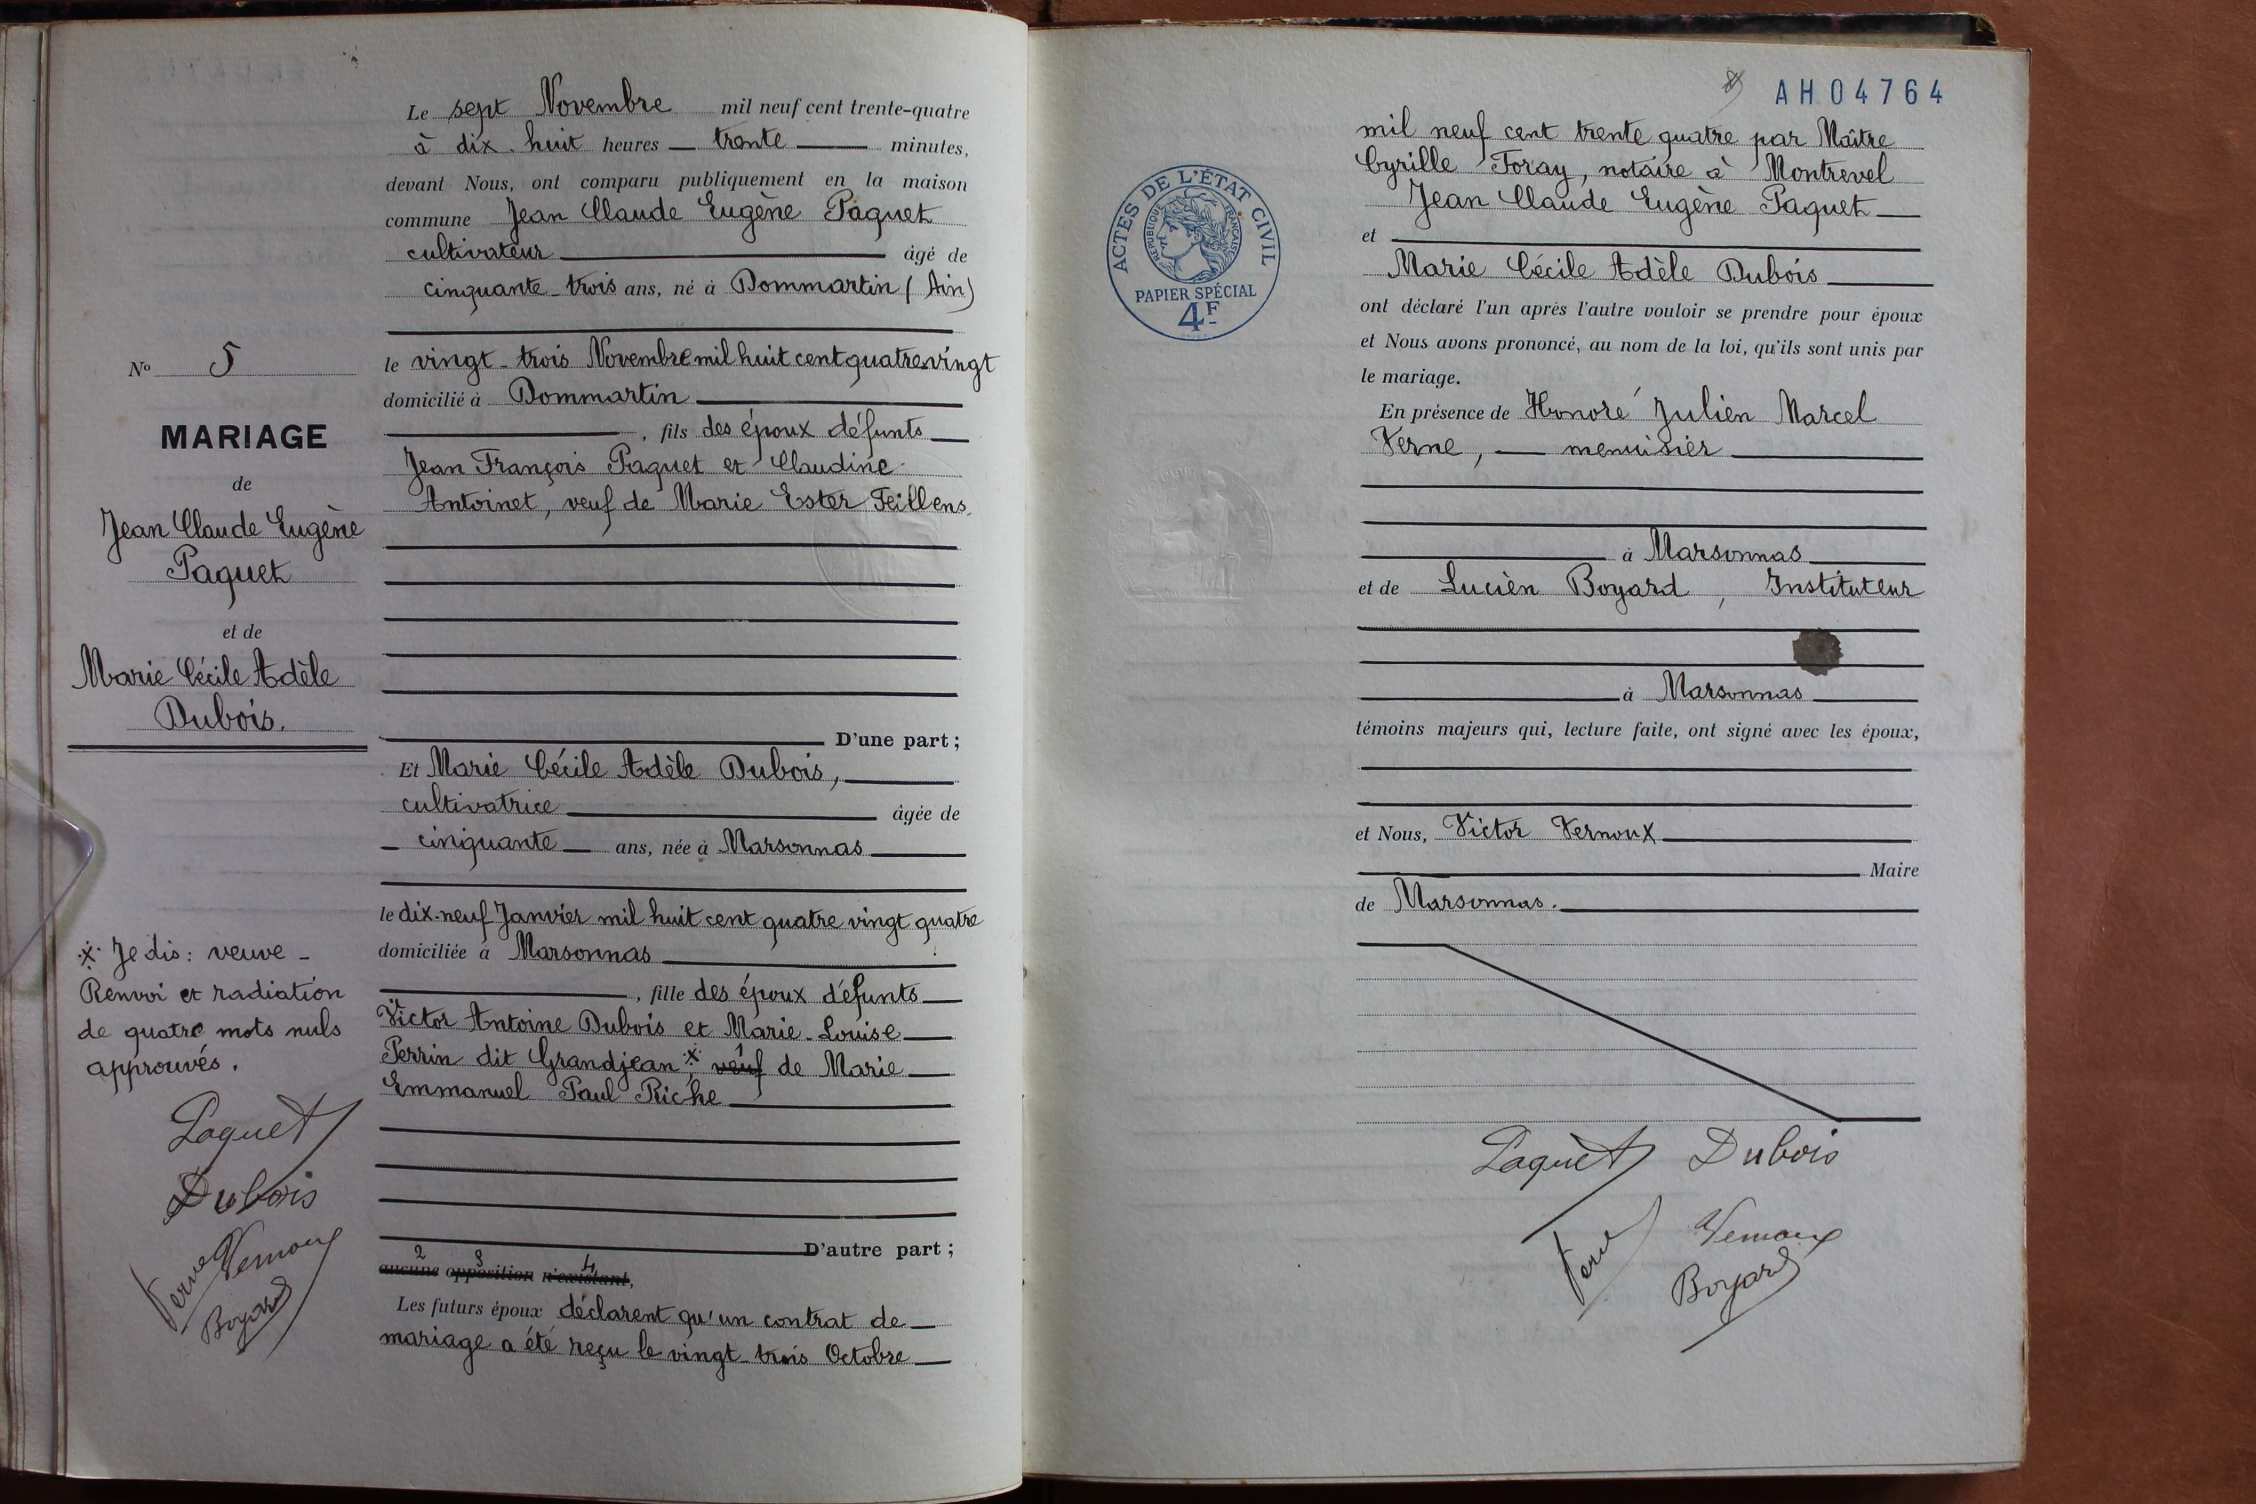 Nº 5
MARIAGE
de
Jean Claude Eugène
Paquet
et de
Marie Cécile Adèle
Dubois.
·x· Je dis : veuve -
Renvoi et radiation
de quatre mots nuls
approuvés.
Paquet
Dubois
Verne Vernoux
Boyard
Le sept Novembre mil neuf cent trente-quatre
à dix-huit heures trente minutes,
devant Nous, ont comparu publiquement en la maison
commune Jean Claude Eugène Paquet
cultivateur âgé de
cinquante-trois ans, né à Dommartin (Ain)
le vingt-trois Novembre mil huit cent quatre-vingt
domicilié à Dommartin
, fils des époux défunts
Jean François Paquet et Claudine
Antoinet, veuf de Marie Ester Feillens.
D'une part ;
Et Marie Cécile Adèle Dubois,
cultivatrice âgée de
cinquante ans, née à Marsonnas
le dix-neuf Janvier mil huit cent quatre vingt quatre
domiciliée à Marsonnas
, fille des époux défunts
Victor Antoine Dubois et Marie-Louise
Perrin dit Grandjean ·x·, 1 veuf de Marie
Emmanuel Paul Riche
D'autre part ;
2 3 4
aucune opposition n'existant,
Les futurs époux déclarent qu'un contrat de
mariage a été reçu le vingt-trois Octobre
AH04764
ACTES DE L'ÉTAT CIVIL
RÉPUBLIQUE FRANÇAISE
PAPIER SPÉCIAL
4F
mil neuf cent trente quatre par Maître
Cyrille Foray, notaire à Montrevel
Jean Claude Eugène Paquet
et
Marie Cécile Adèle Dubois
ont déclaré l'un après l'autre vouloir se prendre pour époux
et Nous avons prononcé, au nom de la loi, qu'ils sont unis par
le mariage.
En présence de Honoré Julien Marcel
Verne, menuisier
à Marsonnas
et de Lucien Boyard, Instituteur
à Marsonnas
témoins majeurs qui, lecture faite, ont signé avec les époux,
et Nous, Victor Vernoux
Maire
de Marsonnas.
Paquet Dubois
Verne Vernoux
Boyard